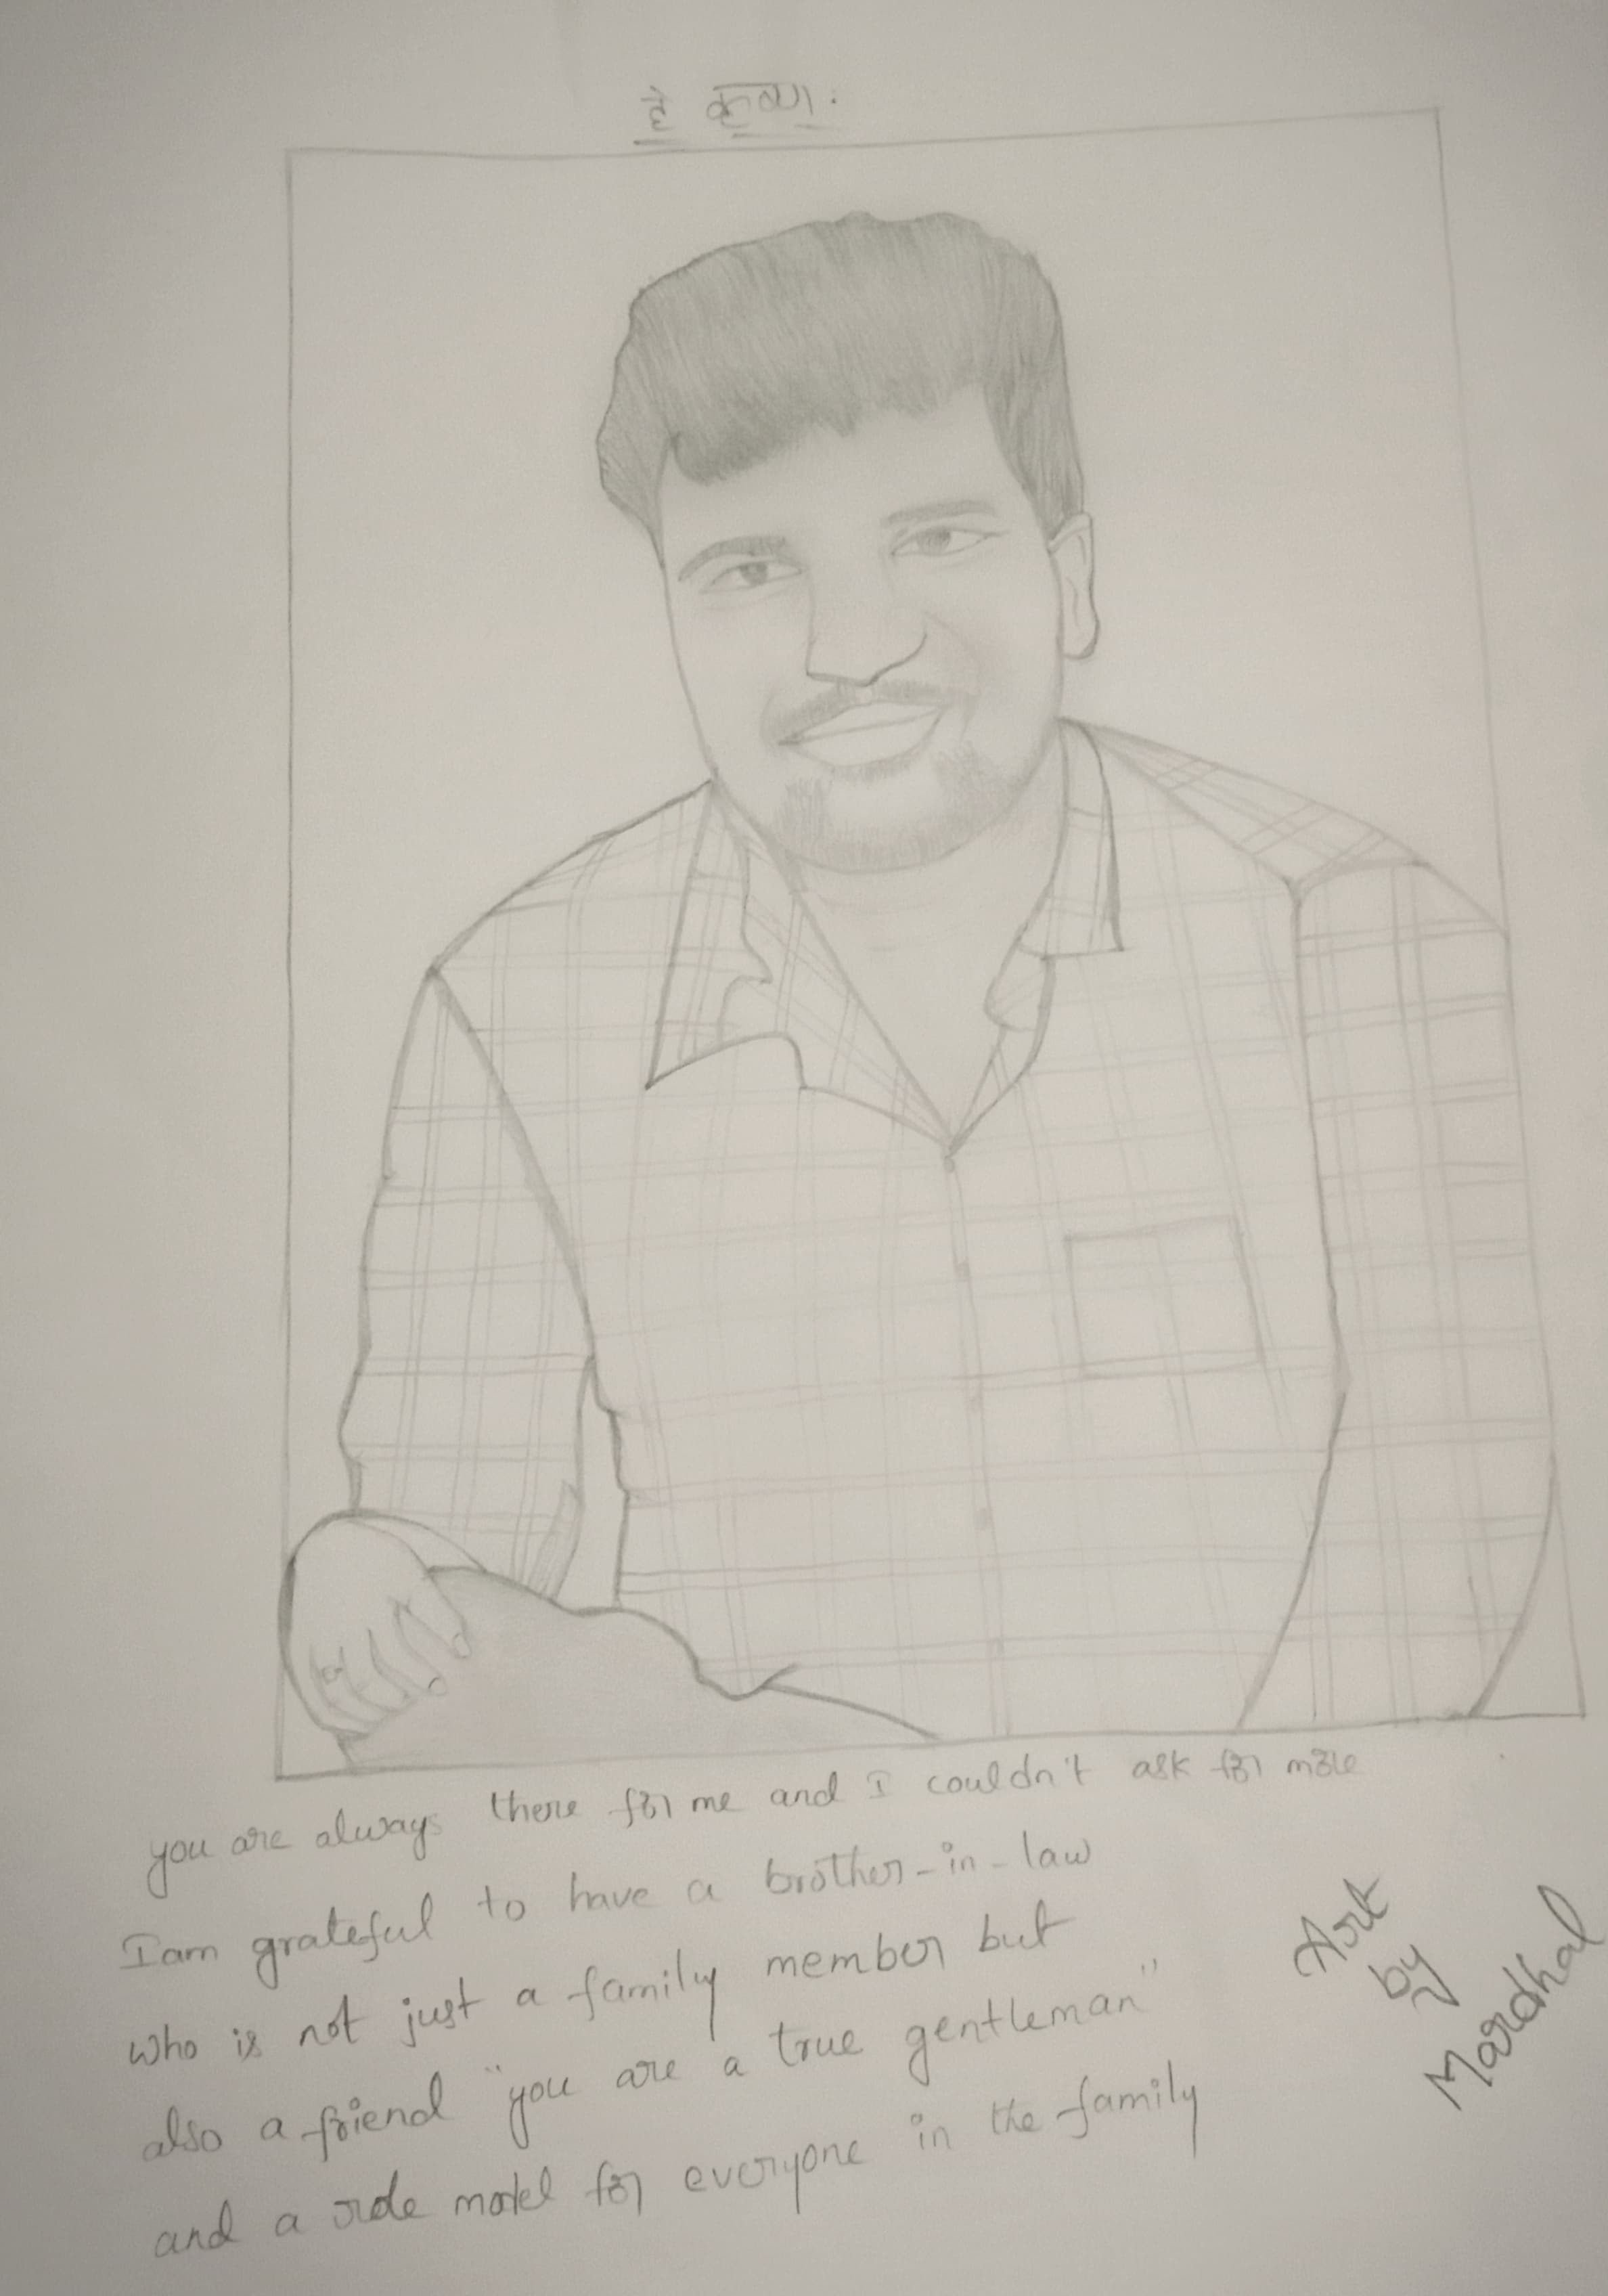 हे कृष्ण.
you are always there for me and I couldn't ask for more
I am grateful to have a brother-in-law
who is not just a family member but
also a friend "you are a true gentleman"
and a role model for everyone in the family
Art
by
Mardhal